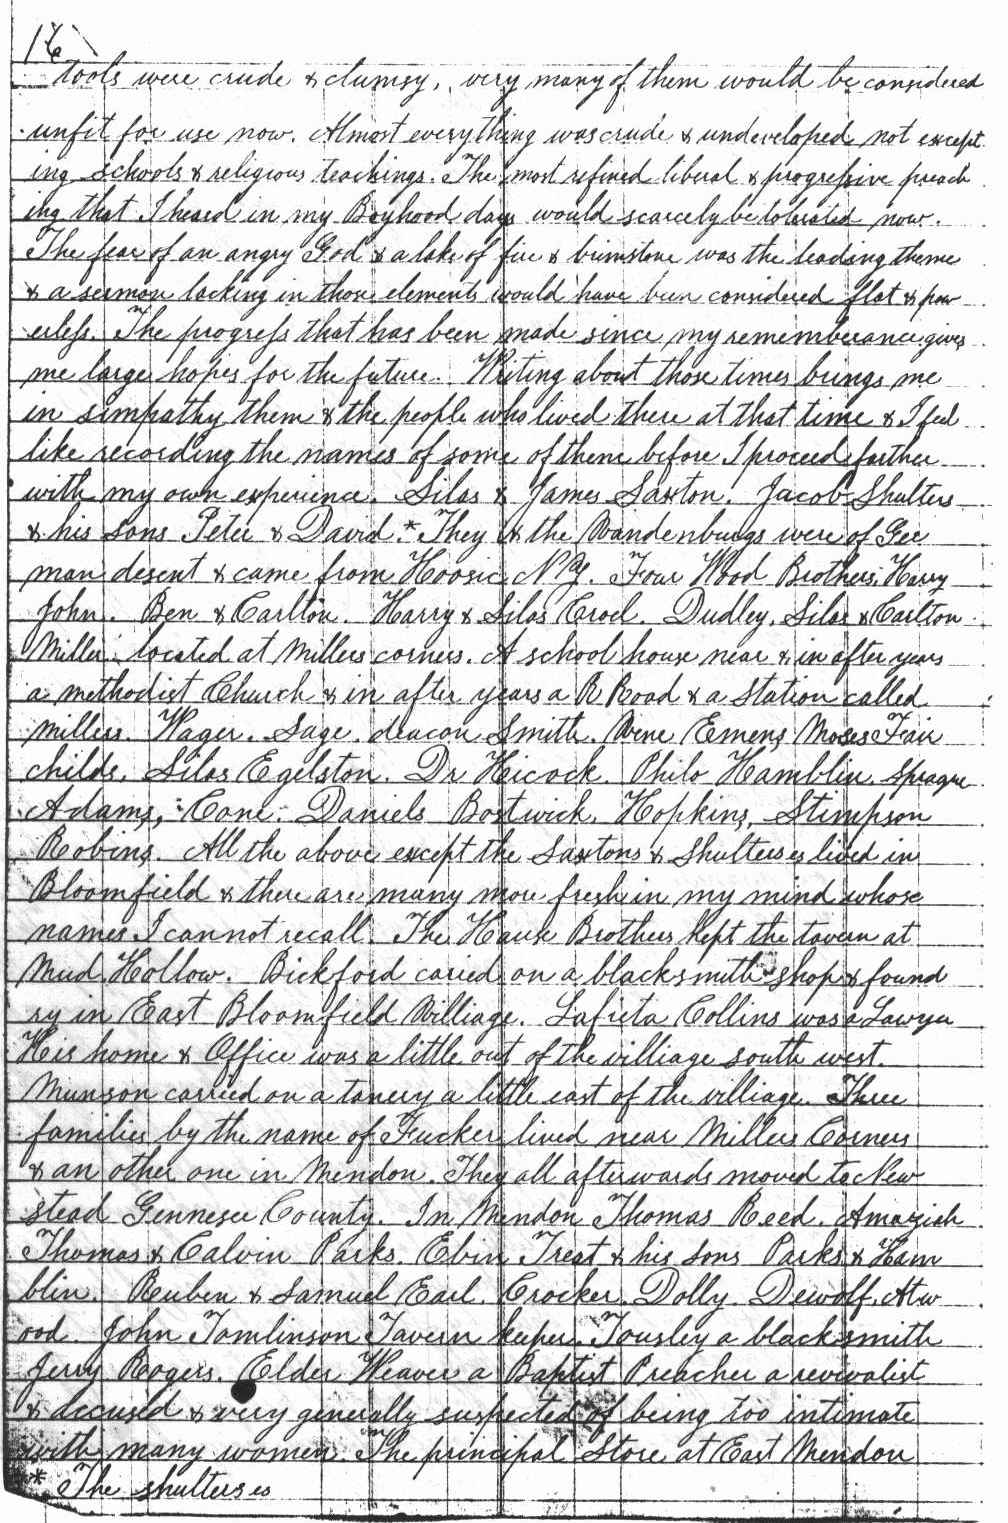 16
tools were crude & clumsy, very many of them would be considered
unfit for use now. Almost everything was crude & undeveloped not except
ing schools & religious teachings. The most refined liberal & progressive preach
ing that I heard in my Boyhood days would scarcely be tolerated now.
The fear of an angry God & a lake of fire & brimstone was the leading theme
& a sermon lacking in those elements would have been considered flat & pow
erless. The progress that has been made since my rememberance gives
me large hopes for the future. Writing about those times brings me
in simpathy them & the people who lived there at that time & I feel
like recording the names of some of them before I proceed farther
with my own experience. Silas & James Saxton. Jacob Shulters
& his sons Peter & David.* They & the Vandenburgs were of Ger
man desent & came from Hoosic N.Y. Four Wood Brothers, Harry
John. Ben & Carlton. Harry & Silas Crod. Dudley, Silas & Carlton
Miller. located at Millers corners. A school house near & in after years
a methodist Church & in after years a R Road & a station called
millers. Wager. Sage. deacon Smith. Emens Moses Fair
childs. Silas Egelston. Dr Hicock. Philo Hamblin. Sprague
Adams, Cone. Daniels Bostwick. Hopkins, Stimpson
Robins. All the above except the Saxtons & Shulterses lived in
Bloomfield & there are many more fresh in my mind whose
names I cannot recall. The Hawk Brothers kept the tavern at
Mud Hollow. Bickford caried on a blacksmith shop & found
ry in East Bloomfield Villiage. Lafieta Collins was a Lawyer
His home & Office was a little out of the villiage south west.
Munson carried on a tanery a little east of the villiage. Three
families by the name of Fucker lived near Millers Corners
& an other one in Mendon. They all afterwards moved to New
stead Gennesee County. In Mendon Thomas Reed. Amaziah
Thomas & Calvin Parks. Ebin Treat & his sons Parks & Ham
blin. Reuben & Samuel Earl. Crocker. Dolly. Dewolf. Atw
ood. John Tomlinson Tavern keeper. Tousley a blacksmith
Jerry Rogers. Elder Weaver a Baptist Preacher a revivalist
& accused & very generally suspected of being too intimate
with many women. The principal Store at East Mendon
* The shulterses